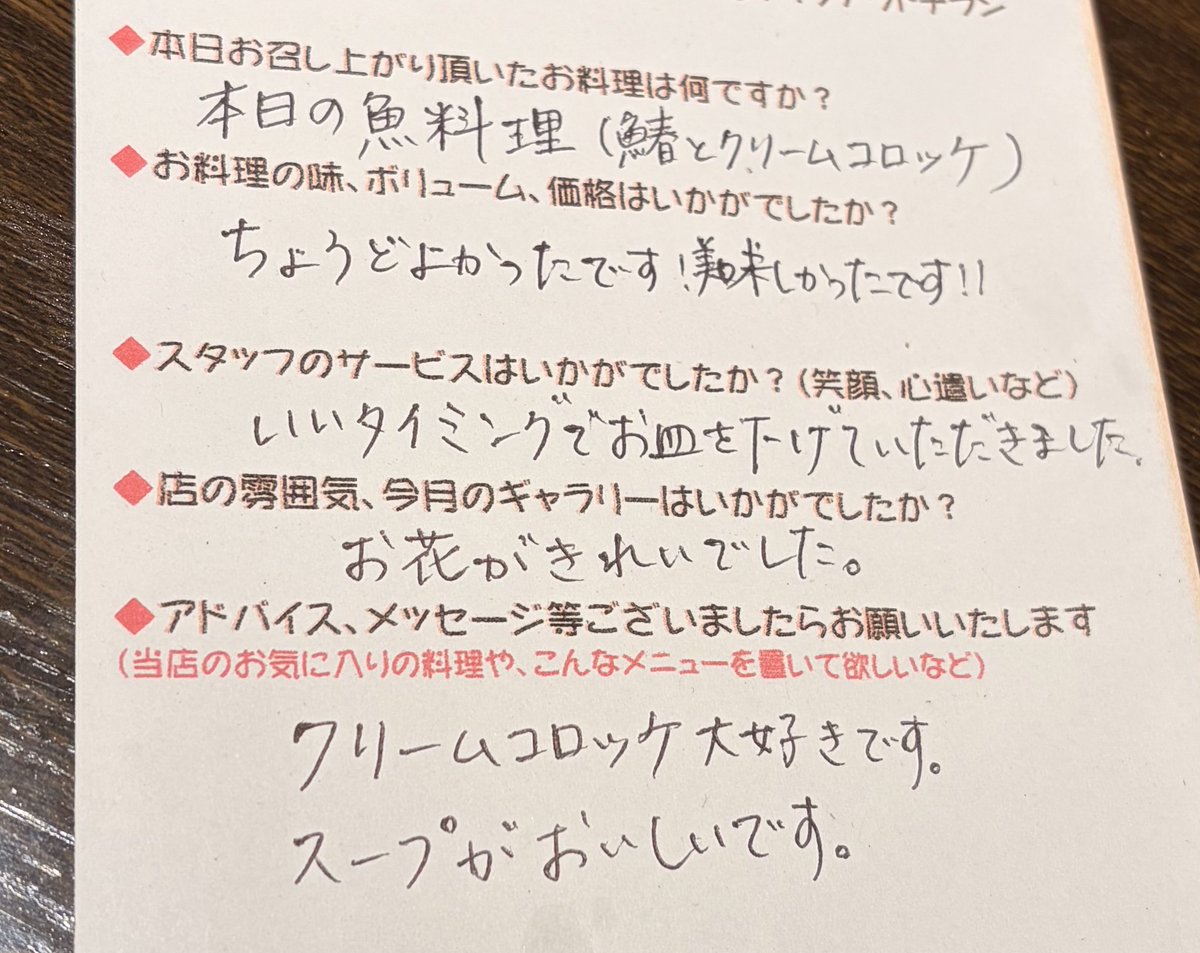 ◆本日お召し上がり頂いたお料理は何ですか？
本日の魚料理（鰆とクリームコロッケ）
◆お料理の味、ボリューム、価格はいかがでしたか？
ちょうどよかったです！美味しかったです!!
◆スタッフのサービスはいかがでしたか？（笑顔、心遣いなど）
いいタイミングでお皿を下げていただきました。
◆店の雰囲気、今月のギャラリーはいかがでしたか？
お花がきれいでした。
◆アドバイス、メッセージ等ございましたらお願いいたします
（当店のお気に入りの料理や、こんなメニューを置いて欲しいなど）
クリームコロッケ大好きです。
スープがおいしいです。